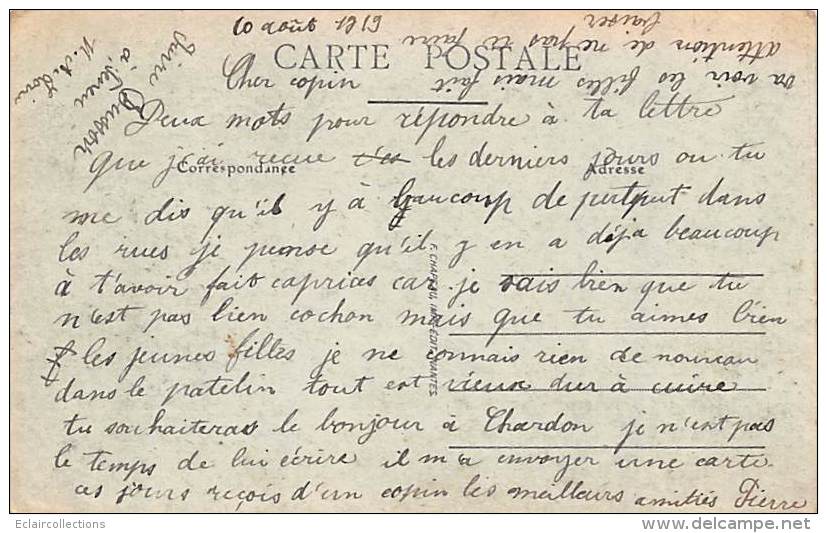 10 août 1919
CARTE POSTALE
Cher copin
Deux mots pour répondre à ta lettre
que j'ai recue les derniers jours ou tu
Correspondance
Adresse
me dis qu'il y à beaucoup de putput dans
les rues je pense qu'il y en a déja beaucoup
à t'avoir fait caprices car je sais bien que tu
n'est pas bien cochon mais que tu aimes bien
les jeunes filles je ne connais rien de nouveau
dans le patelin tout est vieux dur à cuire
tu souhaiteras le bonjour à Chardon je n'est pas
le temps de lui écrire il m'a envoyer une carte
ces jours reçois d'un copin les meilleurs amitiés Pierre
va voir les filles mais fait
attention de ne pas te faire
baiser
F. CHAPEAU, IMP. EDIT. NANTES
Eclaircollections
www.delcampe.net